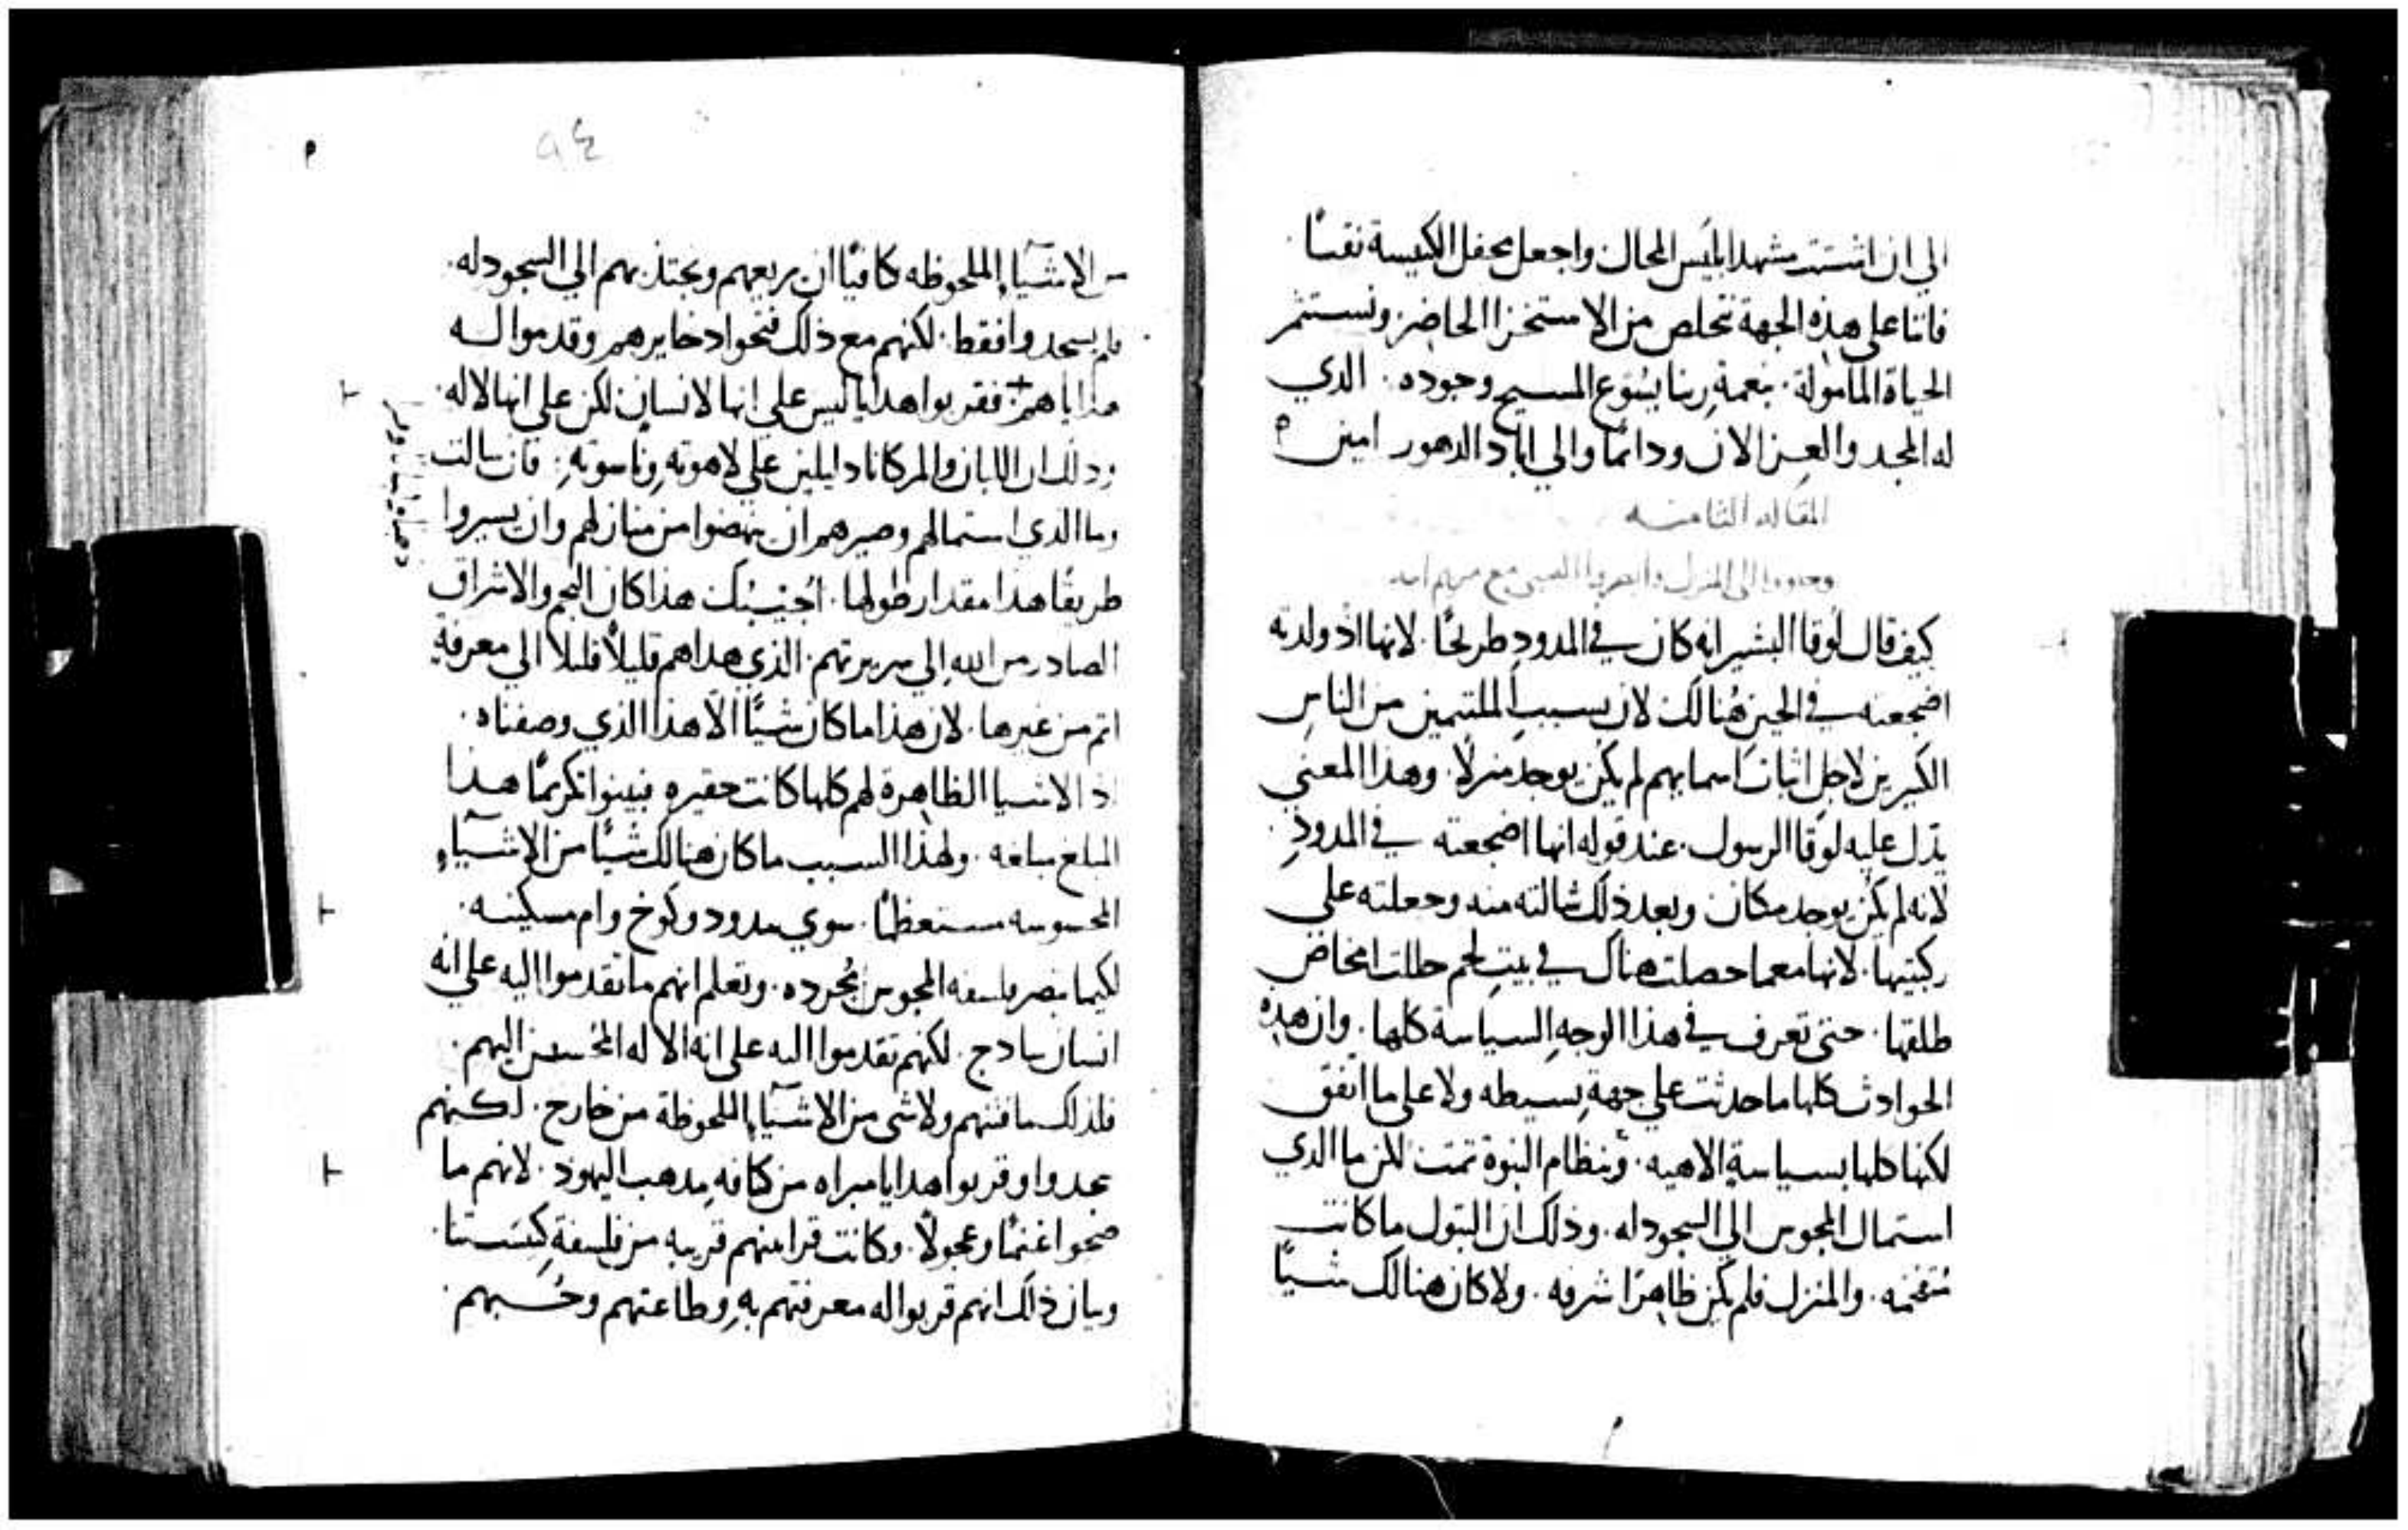 الي ان اشتت مشهد ابليس المحال واجعل محفل الكنيسة نفسًا
فاننا على هذه الجهة نتخلص من الاستخزا الحاضر ونستثمر
الحياة المامولة. بنعمة ربنا يسوع المسيح وجوده. الذي
له المجد والعز الان ودائمًا والي اباد الدهور امين ه
المقاله الثامنه
وجاووا الى المنزل وابصروا الصبي مع مريم امه
كيف قال لوقا البشير انه كان في المدود طريحًا. لانها اذ ولدته
اضجعته في الحين هنالك لان بسبب الملتيمين من الناس
الكثيرين لاجل اثبات اسمايهم لم يكن يوجد منزلًا. وهذا المعني
يدل عليه لوقا الرسول. عند قوله انها اضجعته في المدود.
لانه لم يكن يوجد مكان وبعد ذلك شالته منه وجعلته علي
ركبتيها. لانها معما حصلت هناك في بيت لحم حللت امخاض
طلقها. حتى تعرف في هذا الوجه السياسة كلها. وان هذه
الحوادث كلها ما حدثت علي جهة بسيطه ولا على ما اتفق
لكنها كلها بسياسة الاهيه. وبنظام النبوة تمت لكن ما الذي
استمال المجوس الي السجود له. وذلك ان البتول ما كانت
متفخمه. والمنزل فلم يكن ظاهرًا شرفه. ولا كان هنالك شيًا
٩٤
من الاشياء الملحوظه كافيًا ان يريعهم ويجتذبهم الي السجود له.
فلم يسجدوا فقط. لكنهم مع ذلك فتحوا دخايرهم وقدموا له
هداياهم فقربوا هدايا ليس علي انها لانسان لكن علي انها لاله.
وذلك ان اللبان والمر كانا دليلين علي لاهوته وناسوته. فان سالت
وما الذي استمالهم وصيرهم ان ينهضوا من منازلهم وان يسيروا
طريقًا هذا مقدار طولها. اجيبك هذا كان النجم والاشراق
الصادر من الله الي سريرتهم. الذي هداهم قليلًا قليلا الي معرفة
اتم من غيرها. لان هذا ما كان شيًا الا هذا الذي وصفناه.
اذ الاشيا الظاهرة لهم كلها كانت حقيره فبينوا تكريمًا هذا
المبلغ مبلغه. ولهذا السبب ما كان هنالك شيًا من الاشياء
المحسوسه مستعظمًا. سوي مدود وكوخ وام مسكينه.
لكيما تبصر فلسفه المجوس مجرده. وتعلم انهم ما تقدموا اليه علي انه
انسان سادج. لكنهم تقدموا اليه على انه الاله المحسن اليهم.
فلذلك ما فتنهم ولا شي من الاشياء الملحوظة من خارج. لكنهم
سجدوا وقربوا هدايا مبراه من كثافه مذهب اليهود. لانهم ما
ضحوا غنمًا وعجولًا. وكانت قرابينهم قريبه من فلسفة كنيستنا.
وبيان ذلك انهم قربوا له معرفتهم به وطاعتهم وحبهم.